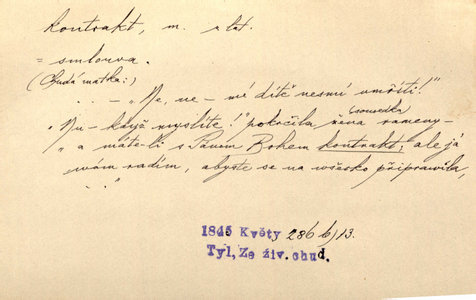 kontrakt, m. z lat.
= smlouva.
(Chudá matka:)
. . . – „Ne, ne – mé dítě nesmí umříti!"
„Nu – když myslíte!" pokrčila žena rameny –
sousedka
„a máte-li s Pánem Bohem kontrakt; ale já
wám radím, abyste se na wšecko připrawila,
. . ."
1845 Květy 286 b) 13.
Tyl, Ze živ. chud.